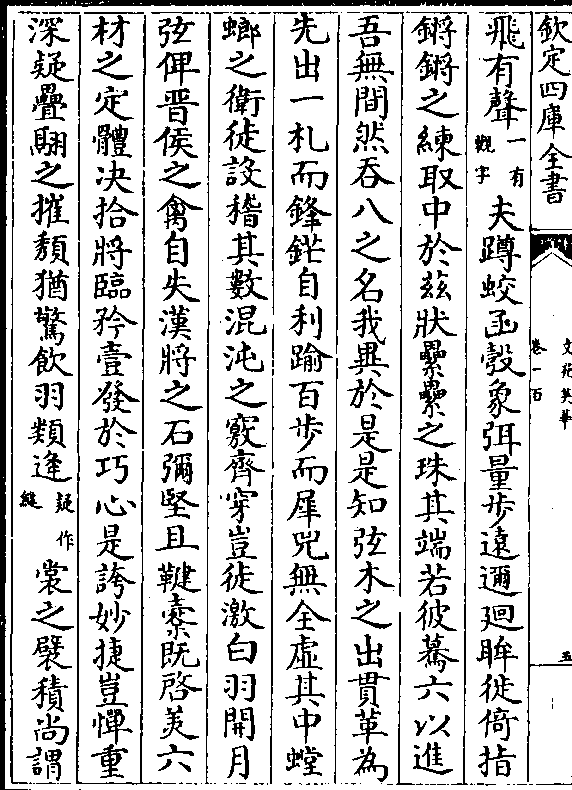 欽定四庫全書
文苑英華
卷一百
五
飛有聲一有觀字夫蹲蛟函彀象弭量步遠邇廻眸徙倚指
鏘鏘之練取中於茲狀纍纍之珠其端若彼驀六以進
吾無間然吞八之名我異於是是知弦木之出貫革為
先出一札而鋒鋩自利踰百步而犀兕無全虛其中螳
螂之衛徒設稽其數混沌之竅齊穿豈徒激白羽開月
弦俾晋侯之禽自失漢將之石彌堅且鞬櫜既啓美六
材之定體决拾將臨矜壹發於巧心是誇妙捷豈憚重
深疑疊駰之摧頽猶驚飲羽類逢疑作縫裳之襞積尚謂